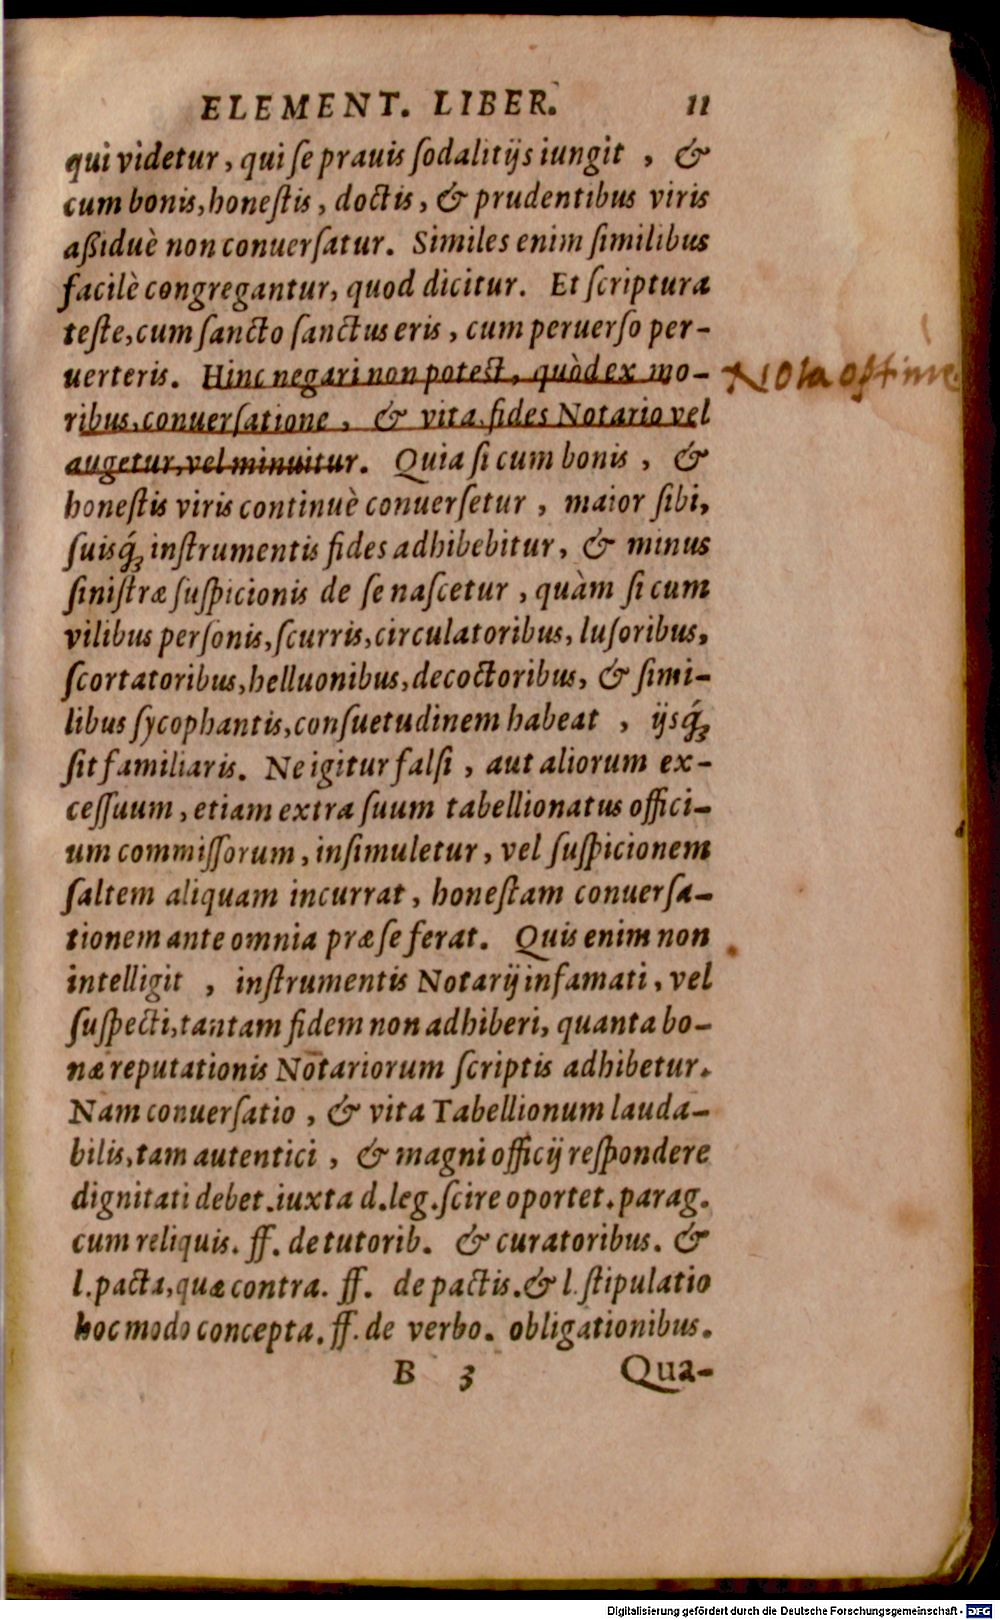 ELEMENT. LIBER. 11
qui videtur, qui ſe prauis ſodalitijs iungit , &
cum bonis, honeſtis, doctis, & prudentibus viris
aßiduè non conuerſatur. Similes enim ſimilibus
facilè congregantur, quod dicitur. Et ſcriptura
teſte, cum ſancto ſanctus eris, cum peruerſo per-
uerteris. Hinc negari non poteſt, quòd ex mo-
Nota optime
ribus, conuerſatione, & vita fides Notario vel
augetur, vel minuitur. Quia ſi cum bonis , &
honeſtis viris continuè conuerſetur , maior ſibi,
ſuisq́ꝫ inſtrumentis fides adhibebitur, & minus
ſiniſtræ ſuſpicionis de ſe naſcetur, quàm ſi cum
vilibus perſonis, ſcurris, circulatoribus, luſoribus,
ſcortatoribus, helluonibus, decoctoribus, & ſimi-
libus ſycophantis, conſuetudinem habeat , ijsq́ꝫ
ſit familiaris. Ne igitur falſi , aut aliorum ex-
ceſſuum, etiam extra ſuum tabellionatus offici-
um commiſſorum, inſimuletur, vel ſuſpicionem
ſaltem aliquam incurrat, honeſtam conuerſa-
tionem ante omnia præ ſe ferat. Quis enim non
intelligit , inſtrumentis Notarij infamati, vel
ſuſpecti, tantam fidem non adhiberi, quanta bo-
næ reputationis Notariorum ſcriptis adhibetur.
Nam conuerſatio , & vita Tabellionum lauda-
bilis, tam autentici , & magni officij reſpondere
dignitati debet. iuxta d. leg. ſcire oportet. parag.
cum reliquis. ff. de tutorib. & curatoribus. &
l. pacta, quæ contra. ff. de pactis. & l. ſtipulatio
hoc modo concepta. ff. de verbo. obligationibus.
B 3 Qua-
Digitalisierung gefördert durch die Deutsche Forschungsgemeinschaft - DFG